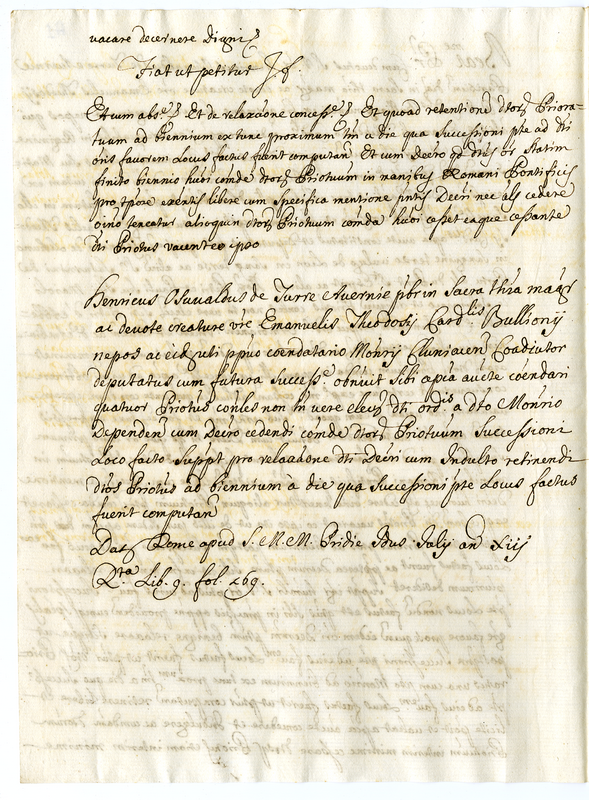 vacare decernere digni
Fiat ut petitur J. f.
Et cum abs.e Et de relaxatione concess.e Et quoad retentione dtorz Priora-
tuum ad biennium ex tunc proximum tm a die qua Successioni pte ad dti
oris favorem Locus factus fuerit computan Et cum Decro qd dtus or statim
finito biennio huoi comde dtorz Priotuum in manibus Romani Pontificis
pro tpore exentis libere cum specifica mentione pntis Decri nec als cedere
oino teneatur alioquin dtorz Priotuum comda huoi cesset eaque cessante
dti Priotus vacent eo ipso
Henricus Osuualdus de Turre Avernie pbr in Sacra thia magr
ac devote creature vre Emanuelis Theodosij Card.lis Bullionij
nepos ac eid uti ppuo coendatario Monrij Cluniacen Coadiutor
deputatus cum futura Success.e obnuit sibi apia aucte coendari
quatuor Priotus conles non tn vere elect dti ord.is a dto Monrio
Dependen cum Decro cedendi comde dtorz Priotuum Successioni
Loco facto Suppt pro relaxatione dti Decri cum Indulto retinendi
dtos Priotus ad biennium à die qua Successioni pte Locus factus
fuerit computan
Dat Rome apud S. M. M. Pridie Idus Julij an xiij
R.ta Lib. 9. fol. 269.